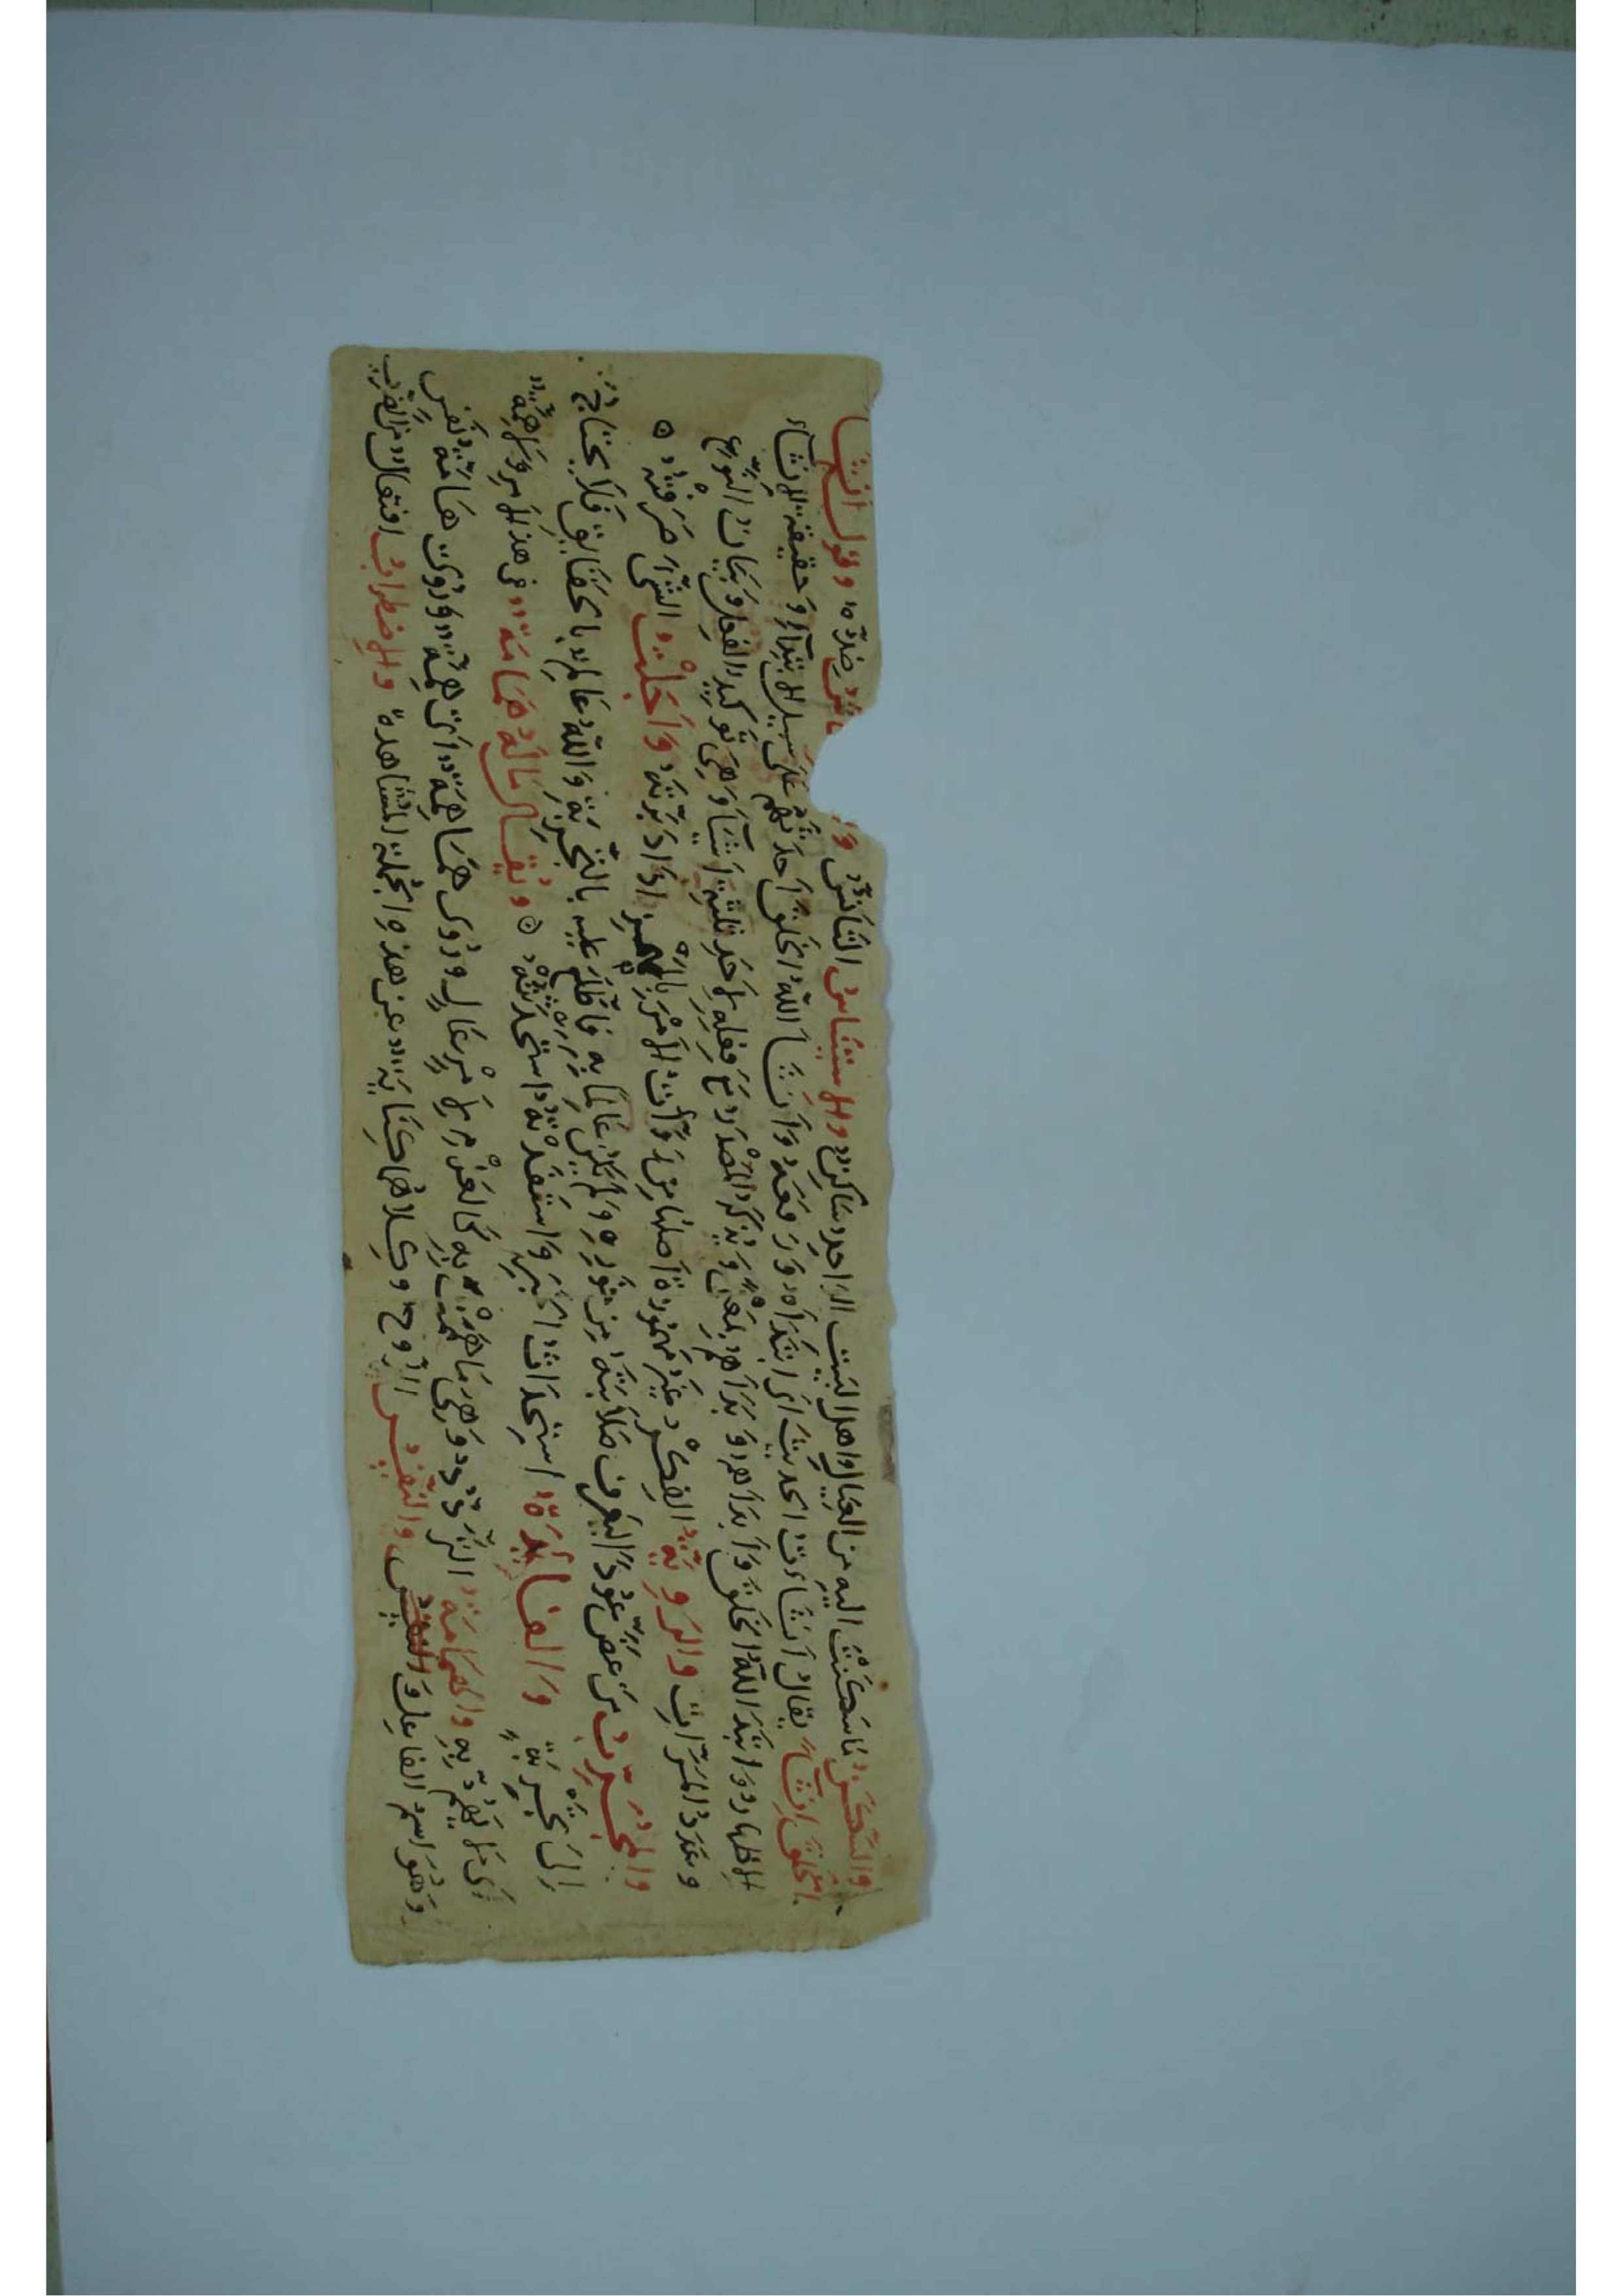 والسكن ما سكنت اليه من العيال واهل البيت الواحد ساكن والاستيناس التأنس ضده وقول انشا
الخلق انشاء يقال انشأت الحديث اى ابتدأه ورفعه وانشأ الله الخلق احدثهم على سبيل الابتداء وحقيقة الانشاء
الاظهار وابتدا الله الخلق وابدأهم وبدأهم بمعنى ويذكر المصدر مع فعله لاحد ثلثة اشيا وهى توكيد الفعل وبيان النوع
وعدد المرات والروية الفكر غير مهموزة اصلها من روأت الامر بالهمز اذا دبرته واجلت الشى صرفته
والمجرب من عض عودا ليعرف صلابته من خوره ولم يكن عالما به فاطلع عليه بالتجربة والله عالم بالحقايق فلا يحتاج
الى تجربة والفايدة استحداث الخير واستفدته استحدثته ويقال ماله همامة فى هذا الامر ولا همة
اى لا يهم به والهمامة التردد وهو ما هممت به كالعزم لامر عال وروى همامة اى همة وروى هامة نفس
وهو اسم الفاعل والنفس الروح وكلاهما كناية عن هذه الجملة المشاهدة والاضطراب افتعال من الضرب